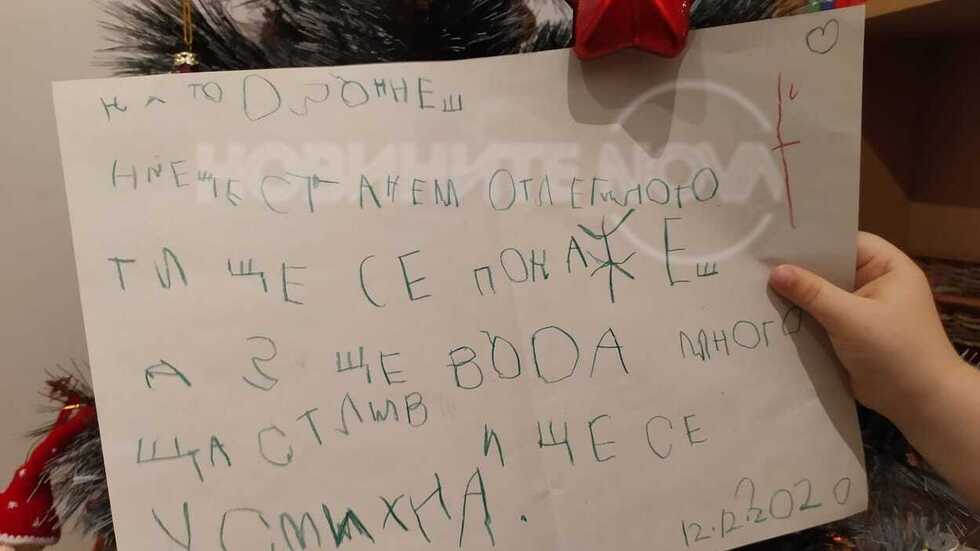 НИЕ ЩЕ СТАНЕМ ОТЛЕ МНОГО
ТИ ЩЕ СЕ ПОНАЖЕш
А З ЩЕ ВОДА МНОГО
ЩАСТЛИВ И ЩЕ СЕ
УСМИХНА.
12.12.2020
НОВИНИТЕ NOVA